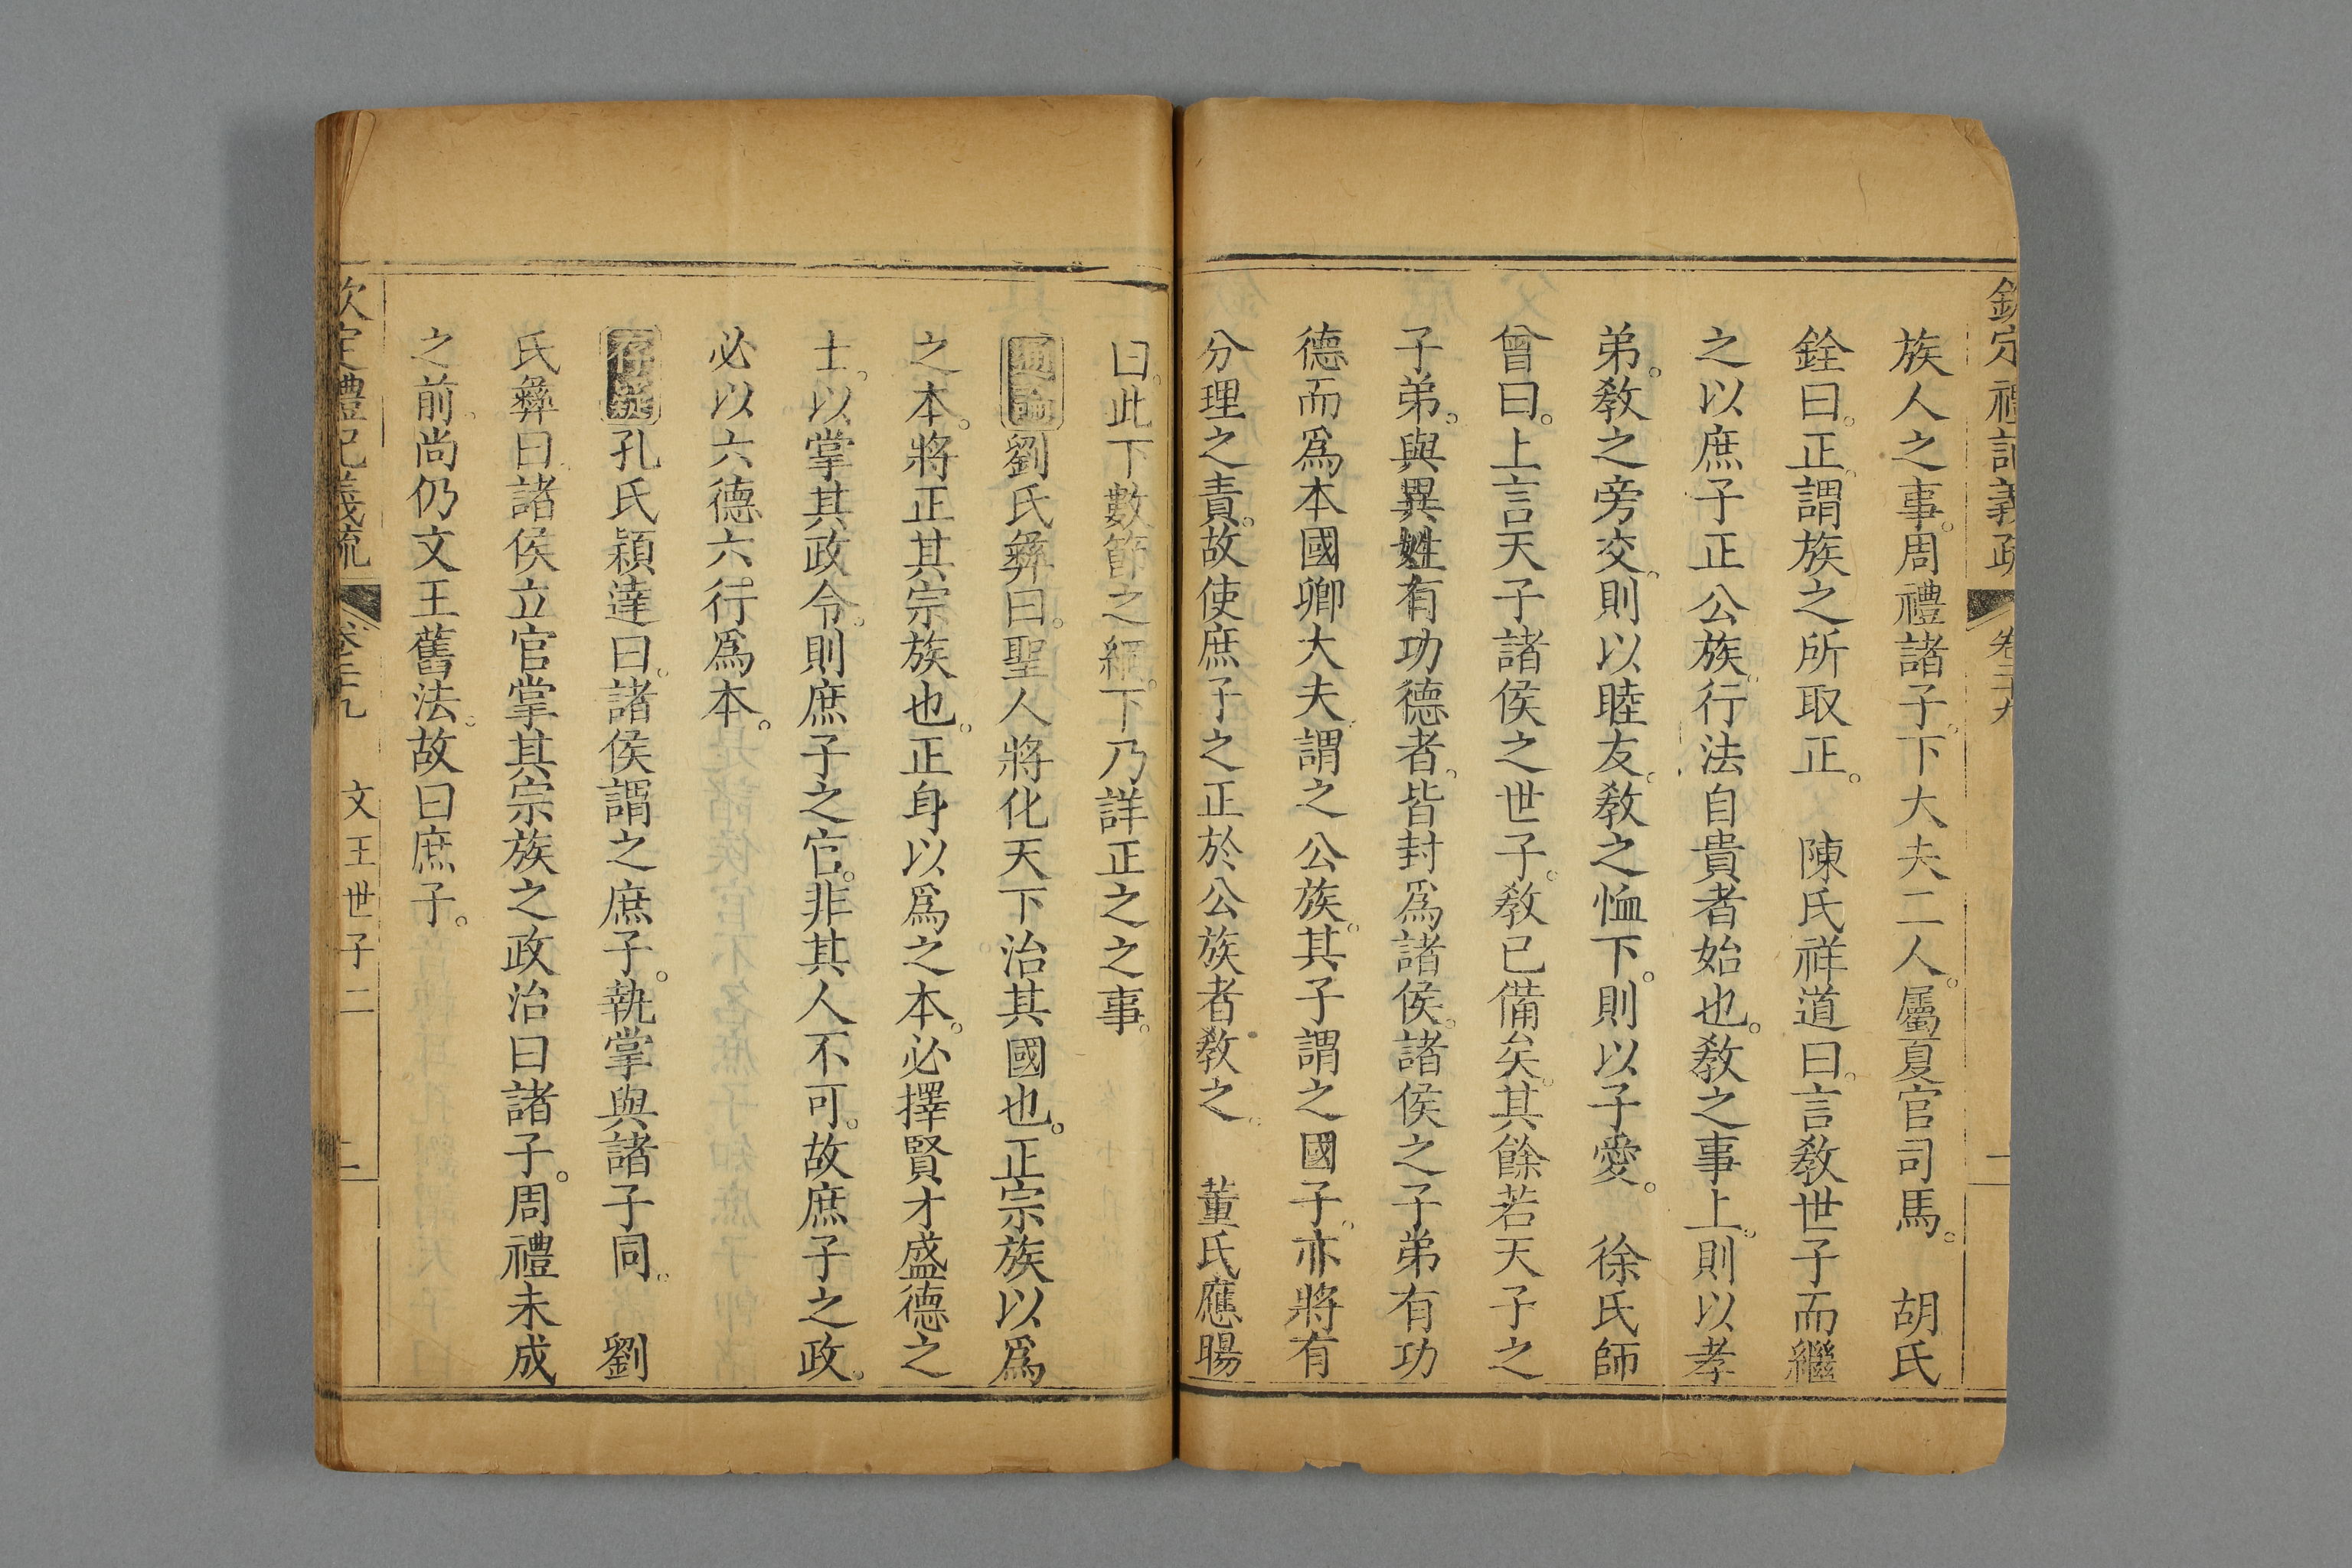 欽定禮記義疏 卷二十九 二
族人之事。周禮諸子。下大夫二人。屬夏官司馬。 胡氏
銓曰。正。謂族之所取正。 陳氏祥道曰。言教世子而繼
之以庶子正公族。行法自貴者始也。教之事上。則以孝
弟。教之旁交。則以睦友。教之恤下。則以子愛。 徐氏師
曾曰。上言天子諸侯之世子。教已備矣。其餘若天子之
子弟。與異姓有功德者。皆封爲諸侯。諸侯之子弟有功
德而爲本國卿大夫。謂之公族。其子謂之國子。亦將有
分理之責。故使庶子之正於公族者教之。 董氏應暘
曰。此下數節之綱。下乃詳正之之事。
通論劉氏彝曰。聖人將化天下。治其國也。正宗族以爲
之本。將正其宗族也。正身以爲之本。必擇賢才盛德之
士。以掌其政令。則庶子之官。非其人不可。故庶子之政。
必以六德六行爲本。
存疑孔氏穎達曰。諸侯謂之庶子。執掌與諸子同。 劉
氏彝曰。諸侯立官掌其宗族之政治曰諸子。周禮未成
之前。尚仍文王舊法。故曰庶子。
欽定禮記義疏 卷二十九 文王世子二 二